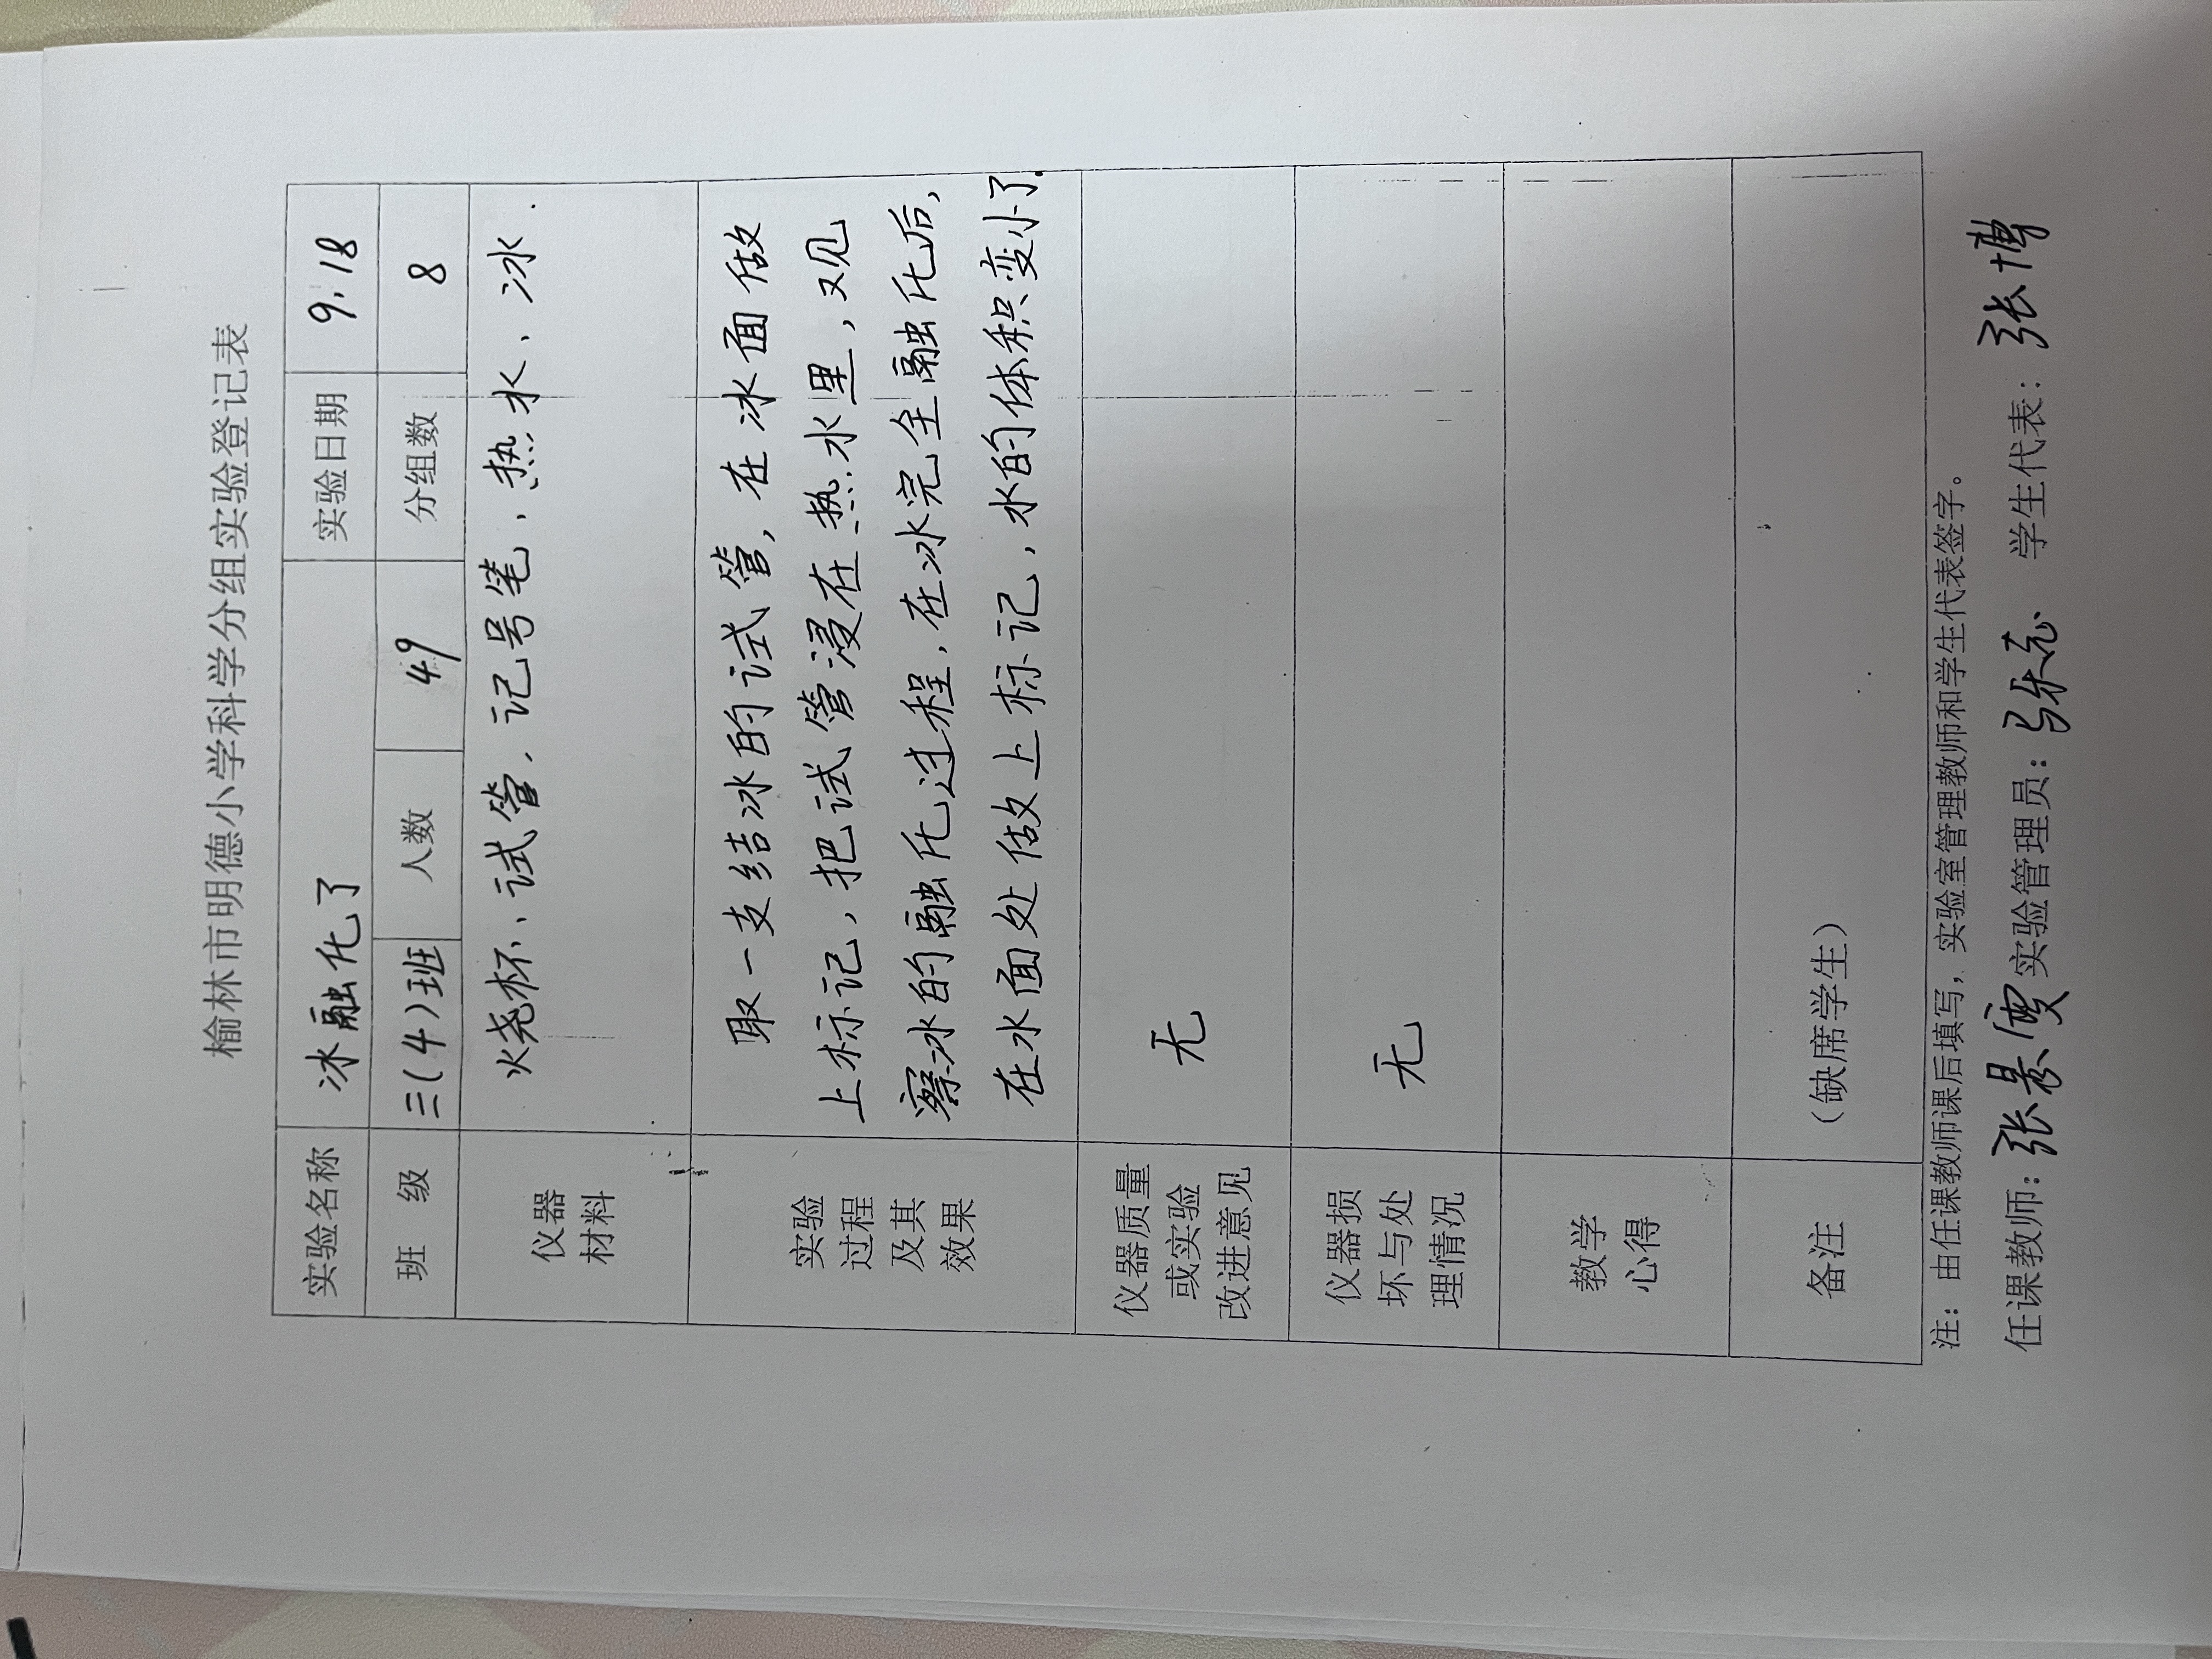 榆林市明德小学科学分组实验登记表
实验名称 冰融化了 实验日期 9.18
班 级 三(4)班 人数 49 分组数 8
仪器
材料
烧杯、试管、记号笔、热水、冰.
实验
过程
及其
效果
取一支结冰的试管,在冰面做
上标记,把试管浸在热水里,观
察冰的融化过程,在冰完全融化后,
在水面处做上标记,水的体积变小了.
仪器质量
或实验
改进意见
无
仪器损
坏与处
理情况
无
教学
心得
备注
(缺席学生)
注:由任课教师课后填写,实验室管理教师和学生代表签字。
任课教师:张景雯 实验管理员: 学生代表:张博